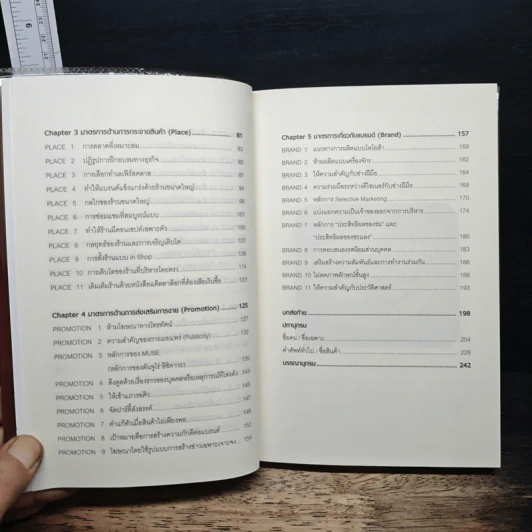 Chapter 3 มาตรการด้านการกระจายสินค้า (Place) 81
PLACE 1 การตลาดที่เหมาะสม 83
PLACE 2 ปฏิรูปการฝึกอบรมทางธุรกิจ 83
PLACE 3 การเลือกทำเลเฟิร์สคลาส
PLACE 4 ทำให้แบรนด์แข็งแกร่งด้วยร้านขนาดใหญ่
PLACE 5 กลไกของร้านขนาดใหญ่
PLACE 6 การซ่อมแซมที่สมบูรณ์แบบ
PLACE 7 ทำให้ร้านมีคอนเซปต์เฉพาะตัว
PLACE 8 กลยุทธ์ของร้านและการเจริญเติบโต
PLACE 9 การตั้งร้านแบบ In Shop
PLACE 10 การเติบโตของร้านที่บริหารโดยตรง
PLACE 11 เติมเต็มร้านด้วยหนังสือแค็ตตาล็อกที่ต้องเสียเงินซื้อ
Chapter 4 มาตรการด้านการส่งเสริมการขาย (Promotion) 125
PROMOTION 1 ห้ามโฆษณาทางโทรทัศน์ 127
PROMOTION 2 ความสำคัญของการเผยแพร่ (Publicity) 132
PROMOTION 3 หลักการของ MUSE
(หลักการของคันซูโง อิชิคาวะ)
PROMOTION 4 ดึงดูดด้วยเรื่องราวของบุคคลหรือเหตุการณ์ที่โด่งดัง 143
PROMOTION 5 ให้เช่าแถวรอคิว 145
PROMOTION 6 จัดปาร์ตี้สังสรรค์ 147
PROMOTION 7 คำแก้ตัวเมื่อสินค้าไม่เพียงพอ 149
PROMOTION 8 เป้าหมายคือการสร้างความภักดีต่อแบรนด์ 152
PROMOTION 9 โฆษณาโดยใช้รูปแบบการสร้างข่าวเฉพาะเจาะจง 154
Chapter 5 มาตรการเกี่ยวกับแบรนด์ (Brand) 157
BRAND 1 แนวทางการผลิตแบบโตโยต้า 159
BRAND 2 ห้ามผลิตแบบเครื่องจักร 162
BRAND 3 ให้ความสำคัญกับช่างฝีมือ
BRAND 4 ความร่วมมือระหว่างดีไซเนอร์กับช่างฝีมือ
BRAND 5 หลักการ Selective Marketing 170
BRAND 6 แบ่งแยกความเป็นเจ้าของออกจากการบริหาร 174
BRAND 7 หลักการ "ประสิทธิผลของร่ม" และ
"ประสิทธิผลของชะแลง"
BRAND 8 การตอบสนองรสนิยมส่วนบุคคล
BRAND 9 เสริมสร้างความสัมพันธ์และการทำงานร่วมกัน
BRAND 10 ไม่ลดภาพลักษณ์ชั้นสูง 188
BRAND 11 ให้ความสำคัญกับประวัติศาสตร์ 193
บทส่งท้าย 198
ปทานุกรม
ชื่อคน / ชื่อเฉพาะ 204
คำศัพท์ทั่วไป / ชื่อสินค้า 229
บรรณานุกรม 242